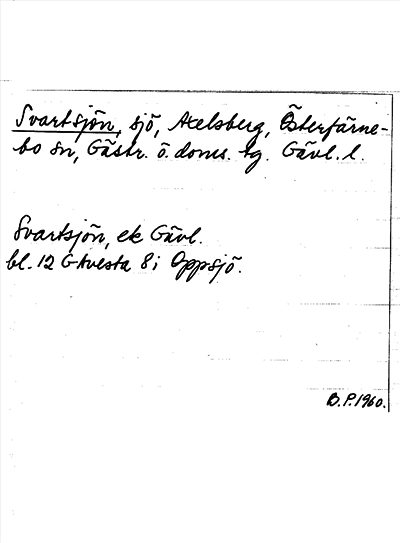 Svartsjön, sjö, Axelsberg, Österfärne-
bo sn, Gästr. ö. doms. tg. Gävl. l.
Svartsjön, ek Gävl.
bl. 12 G Avesta 8 i Oppsjö.
B. P. 1960.